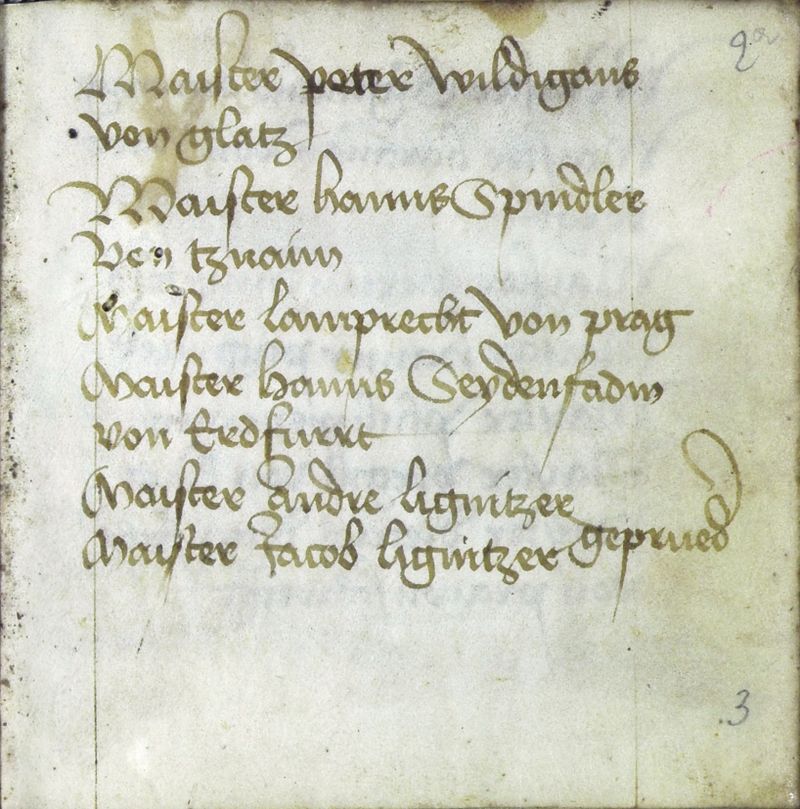 2a
Maister peter wildigans
von glatz
Maister hanns Spindler
von tznaim
Maister lamprecht von prag
Maister hanns Seydenfadm
von Erdfurrt
Maister andre lignitzer
Maister Jacob lignitzer geprued
3